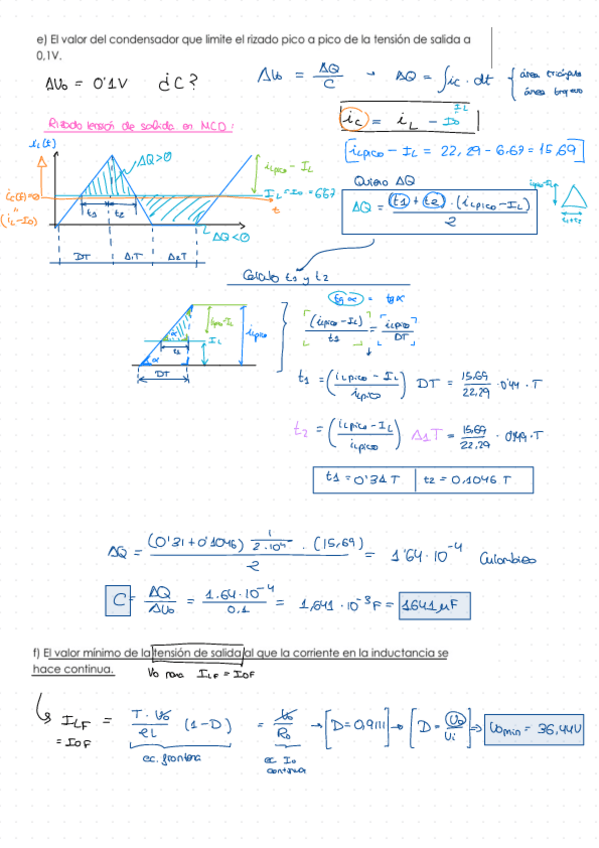 e) El valor del condensador que limite el rizado pico a pico de la tensión de salida a
0,1V.
ΔU₀ = 0'1V ¿C?
ΔU₀ = ΔQ/C → ΔQ = ∫ic · dt { área triángulo
área
Rizado tensión de salida en MCD:
ic = iL - I₀
IL
iLpico - IL = 22,29 - 6.67 = 15,69
iL(t)
ΔQ>0
iLpico - IL
IL = I₀ = 6'67
ic(t)=0
(iL-I₀)
t1 t2
t
ΔQ<0
DT Δ1T Δ2T
Quiero ΔQ
ΔQ = (t1 + t2) · (iLpico - IL) / 2
iLpico-IL
t1+t2
Cálculo t1 y t2
tg α = tg α
(iLpico - IL)/t1 = iLpico/DT
iLpico-IL
IL
iLpico
α
t1
α
DT
t1 = ((iLpico - IL)/iLpico) DT = 15,69/22,29 · 0'44 · T
t2 = ((iLpico - IL)/iLpico) Δ1T = 15,69/22,29 · · T
t1 = 0'31 T | t2 = 0,1046 T
ΔQ = (0'31 + 0'1046) 1/(2·10⁴) · (15,69) / 2 = 1'64 · 10⁻⁴ Culombios
C = ΔQ/ΔU₀ = 1.64 · 10⁻⁴/0,1 = 1,641 · 10⁻³ F = 1641 μF
f) El valor mínimo de la tensión de salida al que la corriente en la inductancia se
hace continua.
V₀ para ILF = I₀F
ILF = T · U₀/2L (1-D) = U₀/R₀ → [D = 0,9111] → [D = U₀/Ui] ⇒ U₀min = 36,44V
= I₀F
ec. frontera
ec I₀
continua